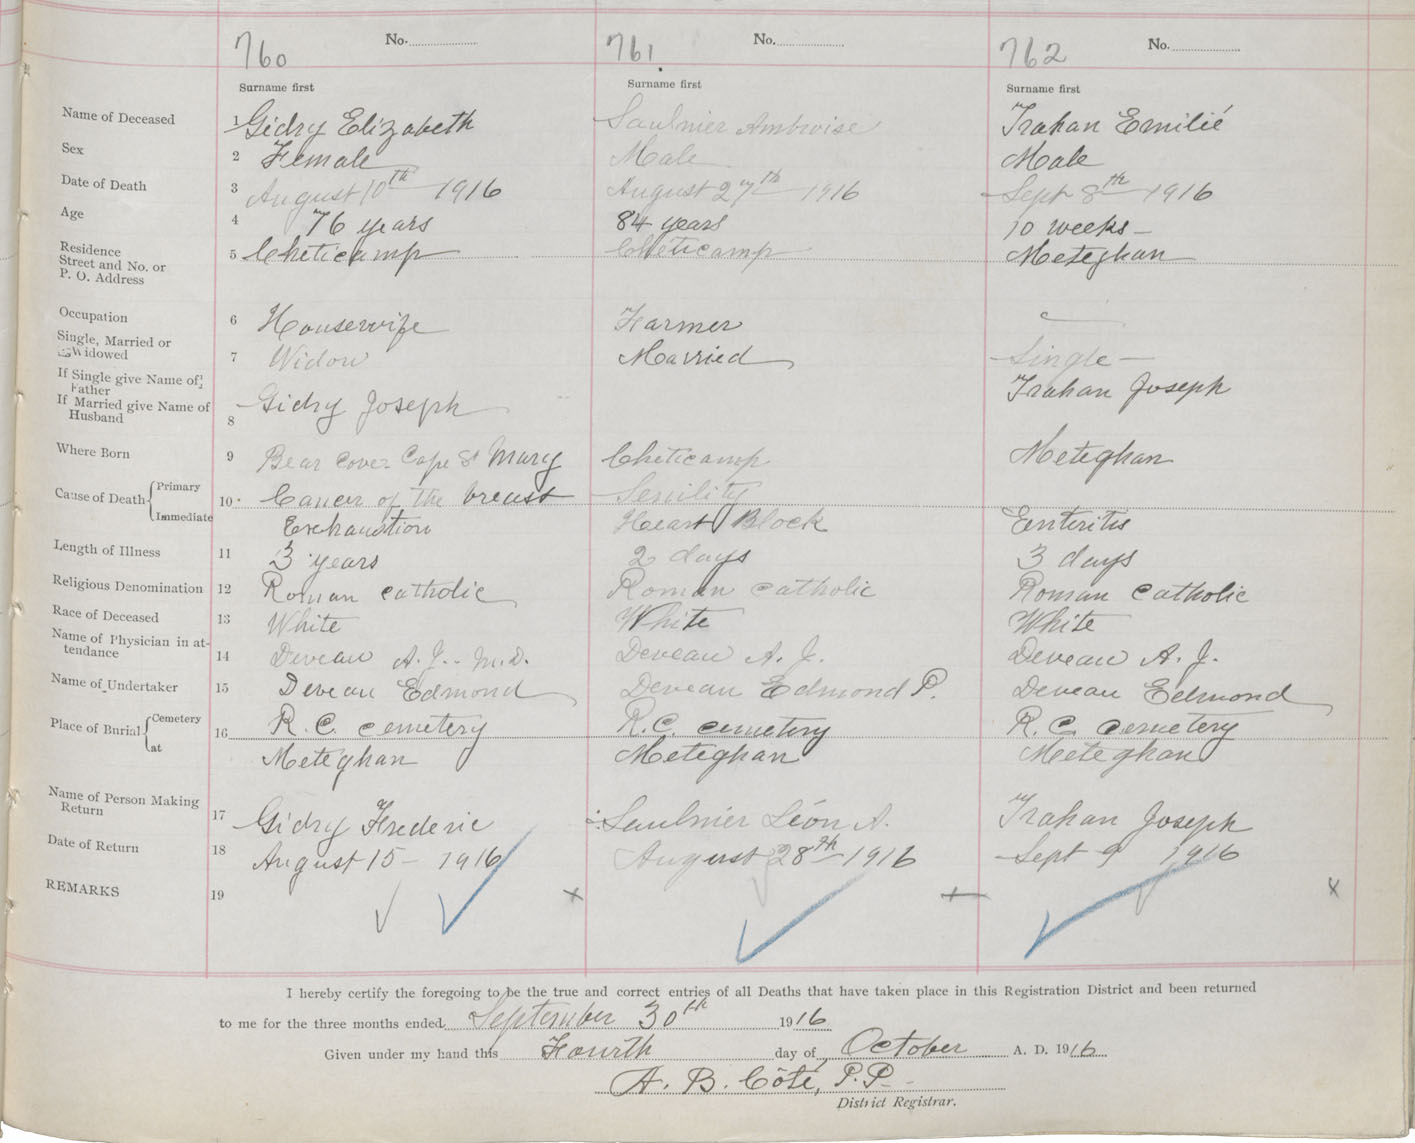 760 No. 761 No. 762 No.
Surname first Surname first Surname first
Name of Deceased 1 Gidry Elizabeth Saulnier Ambroise Trahan Emilié
Sex 2 Female Male Male
Date of Death 3 August 10th 1916 August 27th 1916 Sept 8th 1916
Age 4 76 years 84 years 10 weeks
Residence
Street and No. or
P. O. Address
5 Cheticamp Chéticamp Meteghan
Occupation 6 Housewife Farmer
Single, Married or
Widowed
7 Widow Married Single
If Single give Name of
Father
Trahan Joseph
If Married give Name of
Husband
8 Gidry Joseph
Where Born 9 Bear Cover Cape St Mary Chéticamp Meteghan
Cause of Death Primary 10 Cancer of the breast Senility
Immediate Exhaustion Heart Block Enteritis
Length of Illness 11 3 years 2 days 3 days
Religious Denomination 12 Roman catholic Roman catholic Roman catholic
Race of Deceased 13 White White White
Name of Physician in at-
tendance
14 Deveau A. J. M.D. Deveau A. J. Deveau A. J.
Name of Undertaker 15 Deveau Edmond Deveau Edmond P. Deveau Edmond
Place of Burial Cemetery 16 R. C. cemetery R. C. cemetery R. C. cemetery
at Meteghan Meteghan Meteghan
Name of Person Making
Return
17 Gidry Frederic Saulnier Léon A. Trahan Joseph
Date of Return 18 August 15 - 1916 August 28th 1916 Sept 9 1916
REMARKS 19 x x
I hereby certify the foregoing to be the true and correct entries of all Deaths that have taken place in this Registration District and been returned
to me for the three months ended September 30th 1916
Given under my hand this Fourth day of October A. D. 1916
A. B. Côté, P.P.
District Registrar.